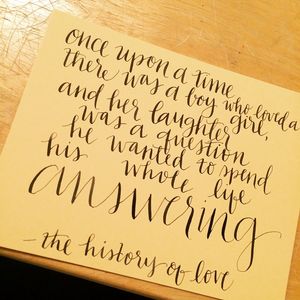 once upon a time
there was a boy who loved a
and her laughter girl,
was a question
he wanted to spend
his whole life
answering
- the history of love